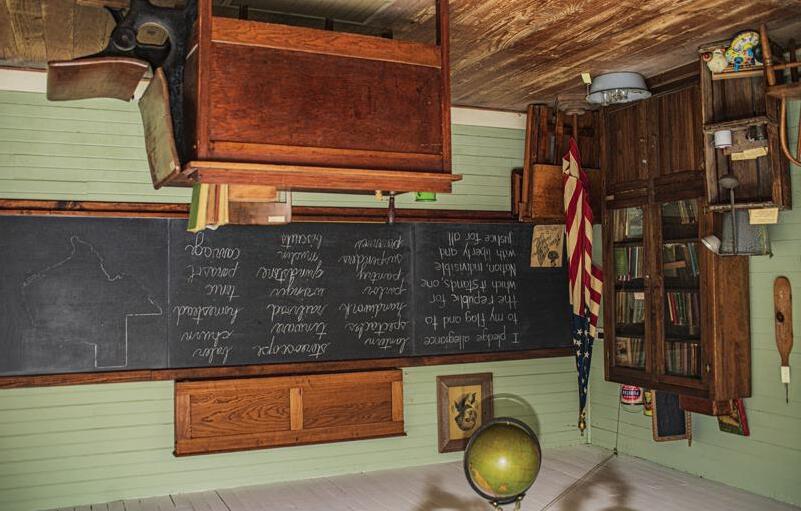 I pledge allegiance
to my flag and to
the republic for
which it stands, one
Nation indivisible
with liberty and
justice for all
lantern
spectacles
handwork
parlor
pantry
suspenders
stereoscope
tinware
railroad
wringer
grindstone
muslin
biscuits
churn
homestead
tonic
parasol
carriage